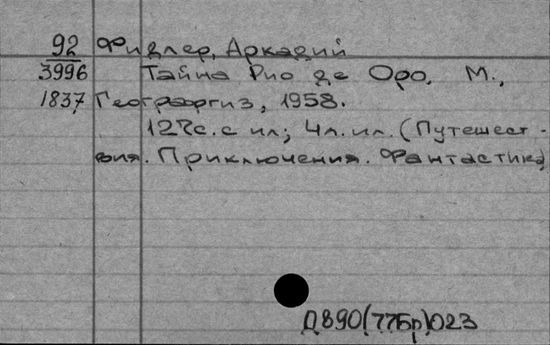 92 Фидлер, Аркадий
3996 Тайна Рио де Оро. М.,
1837 Географгиз, 1958.
127с. с ил; 4л. ил. (Путешест-
вия. Приключения. Фантастика)
Д890(77Бр)023